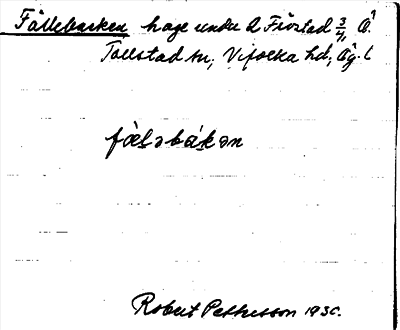 Fållebacken hage under 2 Fröstad 3/4, Å.
Tollstad sn, Vifolka hd, Ög. l
fålǝbakǝn
Robert Pettersson 1930.